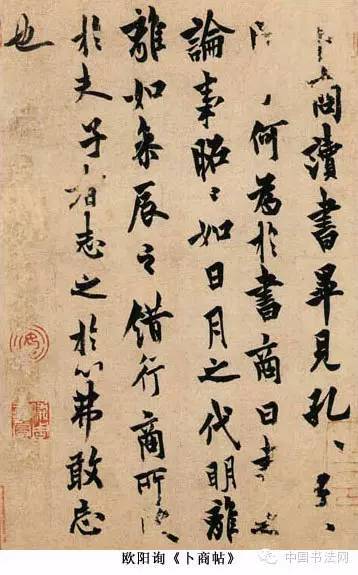 卜商讀書畢見孔〻子〻
問何為於書商曰書之
論事昭〻如日月之代明離
離如參辰之錯行商所受
於夫子者志之於心弗敢忘
也
欧阳询《卜商帖》
中国书法网